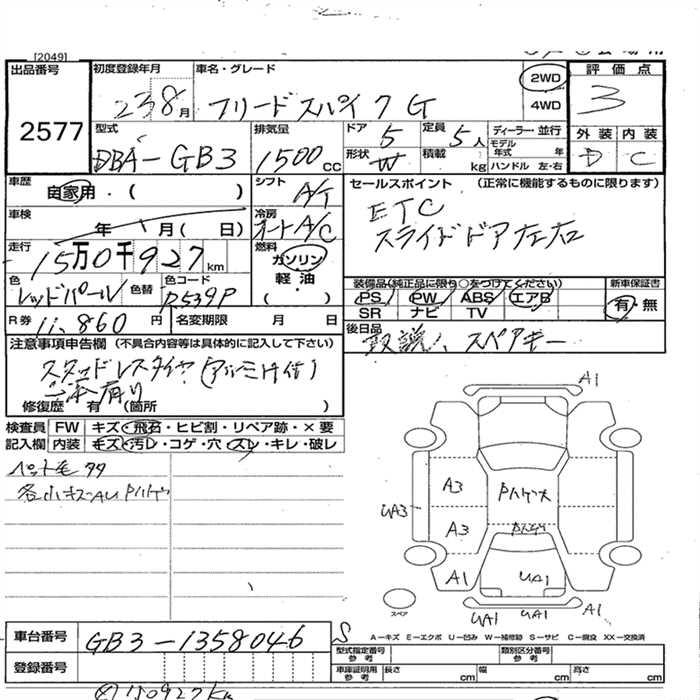 [2049]
出品番号 初度登録年月 車名・グレード 2WD 評価点
2577 23 8月 フリードスパイク G 4WD 3
型式 排気量 ドア 定員 ディーラー・並行 外装 内装
DBA-GB3 1500cc 5 5人 モデル年式 年 D C
形状 W 積載 kg ハンドル 左・右
車歴 自家用・( ) シフト A/T セールスポイント (正常に機能するものに限ります)
車検 年 月( 日) 冷房 オートA/C ETC
走行 15万0千927km 燃料 ガソリン スライドドア左右
軽油・
( )
色 レッドパール 色替 色コード R539P
装備品(純正品に限り○をつけてください) 新車保証書
PS PW ABS エアB 有・無
SR ナビ TV
R券 11,860円 名変期限 月 日 後日品
取説、スペアキー
注意事項申告欄 (不具合内容等は具体的に記入して下さい)
スタッドレスタイヤ(アルミ付)
有り
修復歴 有 (箇所 )
検査員 FW キズ・飛石・ヒビ割・リペア跡・×要
記入欄 内装 キズ・汚レ・コゲ・穴・スレ・キレ・破レ
ペット毛
各小キズAU
A1
A3
UA3
A3
A1
UA1
スペア
UA1 UA1 A1
A-キズ E-エクボ U-凹み W-補修跡 S-サビ C-腐食 XX-交換済
車台番号 GB3-1358046 S
型式指定番号 参考 類別区分番号 参考
登録番号
車庫証明用 参考 長さ cm 幅 cm 高さ cm
150927km